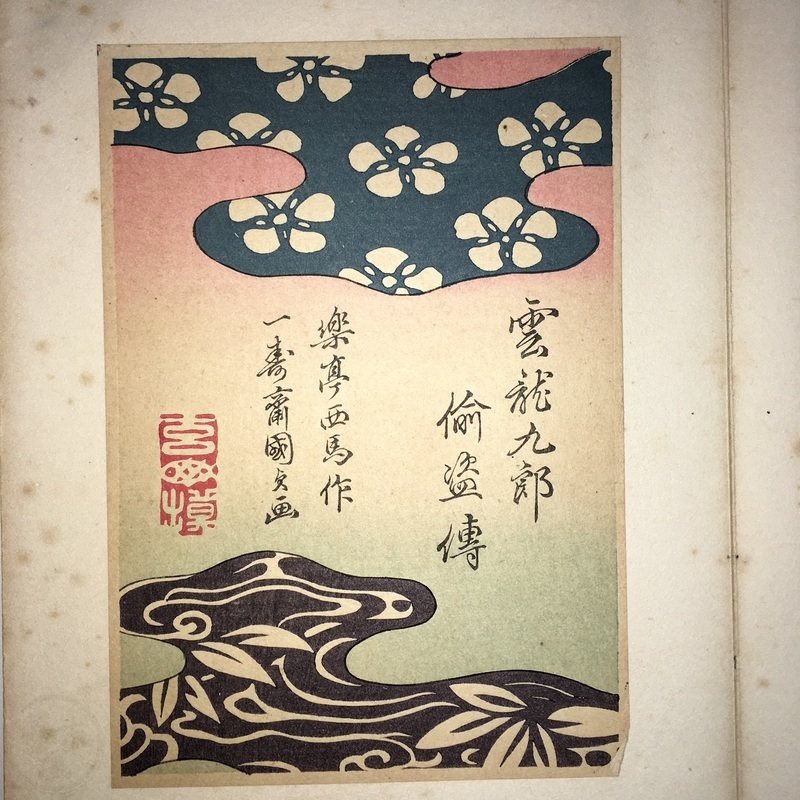 雲龍九郎
偸盗傳
樂亭西馬作
一壽齋國貞画